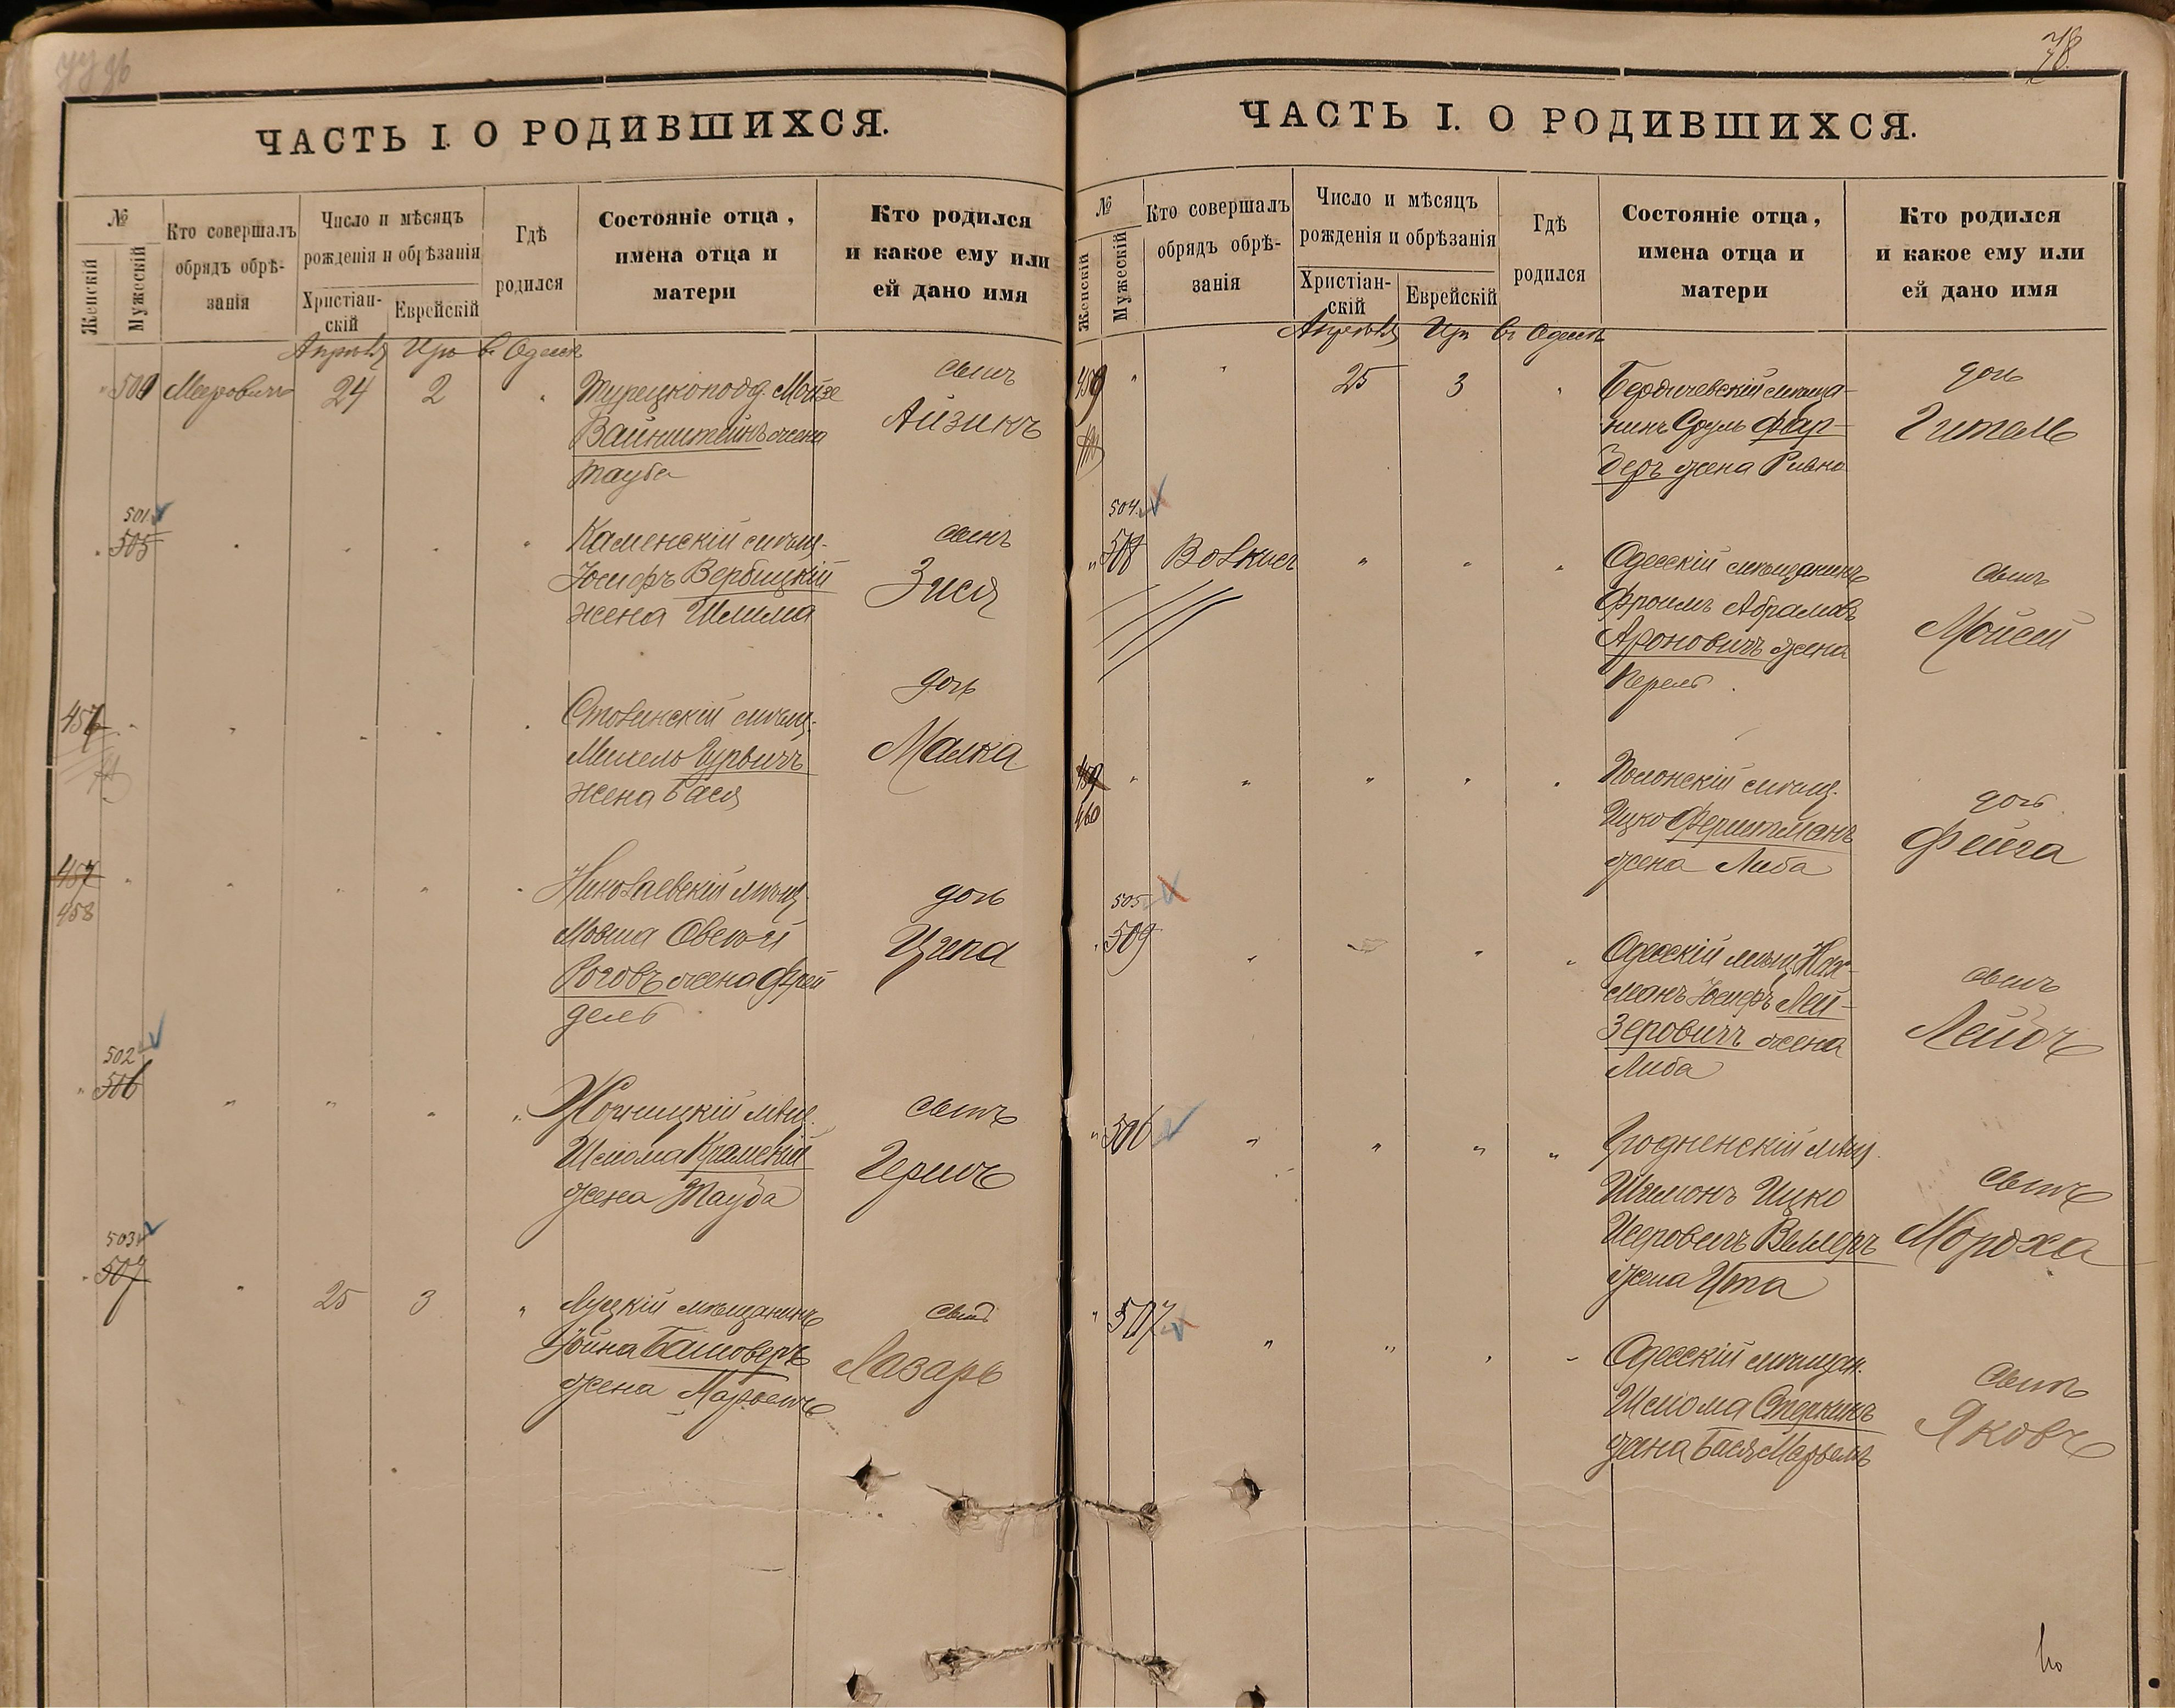 ЧАСТЬ I. О РОДИВШИХСЯ.
№
Женскій
Мужескій
Кто совершалъ
обрядъ обрѣ-
занія
Число и мѣсяцъ
рожденія и обрѣзанія
Христіан-
скій
Еврейскій
Гдѣ
родился
Состояніе отца,
имена отца и
матери
Кто родился
и какое ему или
ей дано имя
Апрѣля Иръ въ Одессѣ
Мееровичъ 24 2
Турецкоподд. Мойзе
Вайнштейнъ жена
Тауба
сынъ
Айзикъ
501
505
Каменскій мѣщ.
Іосифъ Вербицкій
жена Шлима
сынъ
Зися
457
Михель Гурвичъ
жена Бася
дочь
Малка
457
458
Николаевскій мѣщ.
Мовша Овсей
Роговъ жена Фрей
дель
дочь
Ципа
502
506
мѣщ.
Шлома Крамскій
жена Тауба
сынъ
Гершъ
503
507
25 3
Луцкій мѣщанинъ
Іойна Башоверъ
жена Марьемъ
сынъ
Лазарь
78.
ЧАСТЬ I. О РОДИВШИХСЯ.
№
Женскій
Мужескій
Кто совершалъ
обрядъ обрѣ-
занія
Число и мѣсяцъ
рожденія и обрѣзанія
Христіан-
скій
Еврейскій
Гдѣ
родился
Состояніе отца,
имена отца и
матери
Кто родился
и какое ему или
ей дано имя
Апрѣля Иръ въ Одессѣ
459 25 3
Бердичевскій мѣща-
нинъ Сруль Фар-
беръ жена Ривка
дочь
Гитель
504
508 Волкисъ
Одесскій мѣщанинъ
Фроимъ Абрамовъ
Ароновичъ жена
Перель
сынъ
Мойсей
459
460
Полонскій мѣщ.
Ицко Ферштманъ
жена Либа
дочь
Фейга
505
509
Одесскій мѣщ. Нах-
манъ Іосифъ Лей-
зеровичъ жена
Либа
сынъ
Лейбъ
506
Гродненскій мѣщ.
Шлимонъ Ицко
Исеровичъ
жена Ита
сынъ
Мордха
507
Одесскій мѣщан.
Шлома Стеркинъ
жена Бася Марьемъ
сынъ
Яковъ